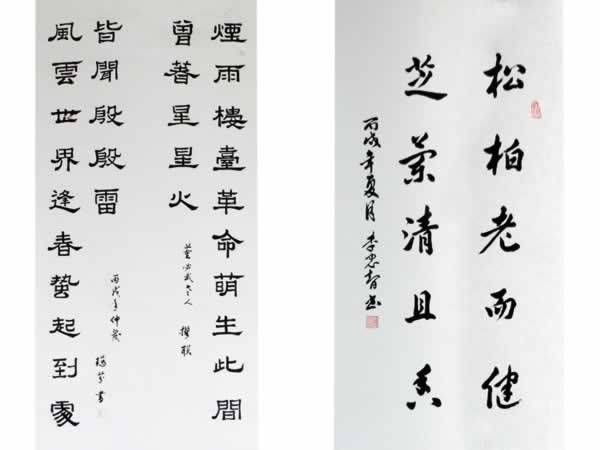 煙雨樓臺革命萌生此間
曾著星星火
董必武老人 撰聯
風雲世界逢春蟄起到處
皆聞殷殷雷
丙戌年仲夏 書
松柏老而健
芝蘭清且香
丙戌年夏月 李忠智书